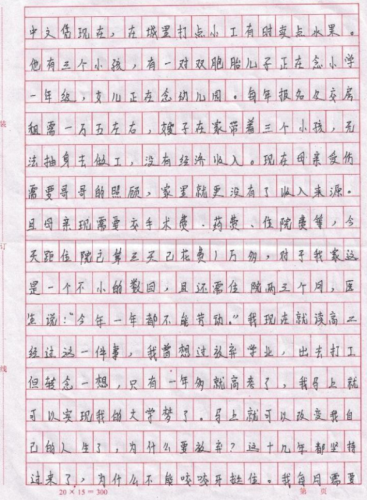 中文凭现在,在城里打点小工有时卖点水果。
他有三个小孩,有一对双胞胎儿子正在念小学
一年级,女儿正在念幼儿园。每年报名及交房
租需一万五左右,嫂子在家带着三个小孩,无
法抽身去做工,没有经济收入。现在母亲受伤
需要哥哥的照顾,家里就更没有了收入来源。
且母亲现需要交手术费、药费、住院费等,今
天距住院已第三天已花费1万多,对于我家这
是一个不小的数目,且还需住院两三个月,医
生说:“今年一年都不能劳动。”我现在就读高二
经过这一件事,我曾想过放弃学业,出去打工
但转念一想,只有一年多就高考了,我马上就
可以实现我的大学梦了。马上就可以改变我自
己的人生了,为什么要放弃?这十几年都坚持
过来了,为什么不能咬咬牙挺住。我每月需要
装
订
线
20×15=300
第 页